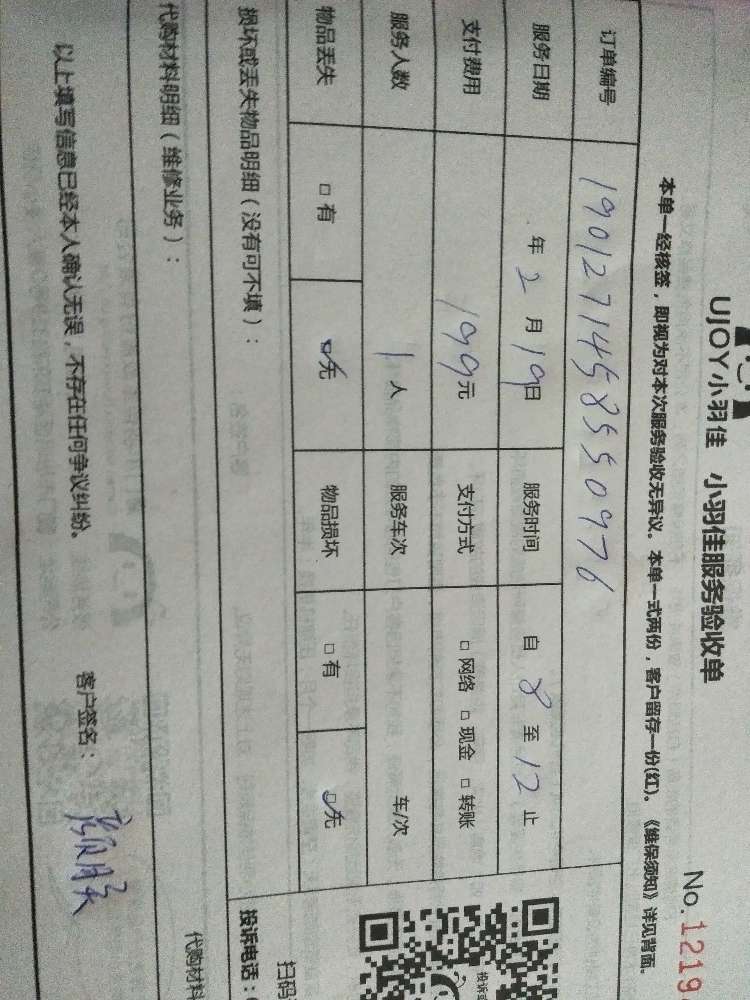 UJOY小羽佳 小羽佳服务验收单
No.1219
本单一经核签，即视为对本次服务验收无异议。本单一式两份，客户留存一份(红)。《维保须知》详见背面。
订单编号 19012714585550976
服务日期 年 2 月 19 日 服务时间 自 8 至 12 止
支付费用 199元 支付方式 □ 网络 □ 现金 □ 转账
服务人数 1 人 服务车次 车/次
物品丢失 □ 有 □ 无 物品损坏 □ 有 □ 无
损坏或丢失物品明细（没有可不填）：
投诉电话：
扫码
代购材料明细（维修业务）：
代购材料
以上填写信息已经本人确认无误，不存在任何争议纠纷。
客户签名：